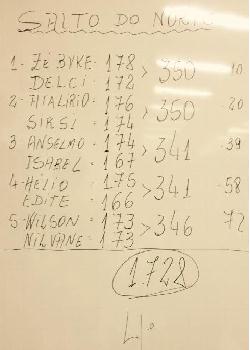 SALTO DO NORTE
1- ZÉ BYKE- 178 > 350 10
DELCI = 172
2- HILÁRIO- 176 > 350 - 20
SIRSI = 174
3 ANSELMO = 174 > 341 - 39
ISABEL = 167
4- HÉLIO = 175 > 341 - 58
EDITE = 166
5- WILSON = 173 > 346 72
NILVANE = 173
1.728
4º